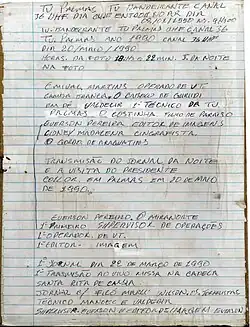 TV PALMAS TV BANDEIRANTE CANAL
36 UHF. DIA QUE ENTROU NO AR DIA
TV. BANDEIRANTE UHF CANAL 36
TV PALMAS 1990 CANAL 36 UHF
DIA 20/MAIO/1990
HORAS. DA FOTO 18 HA = 22 MIN. 5. DA NOITE
NA FOTO
EMIVAL MARTINS OPERADO DE V.T.
CAMISA BRANCA. O CABELO DE GURIDO
EM PÉ VALDECIR 1º TÉCNICO DA TV
PALMAS O CESTINHA FILHO DE PARAISO
EVERSON PEREIRA EDITOR DE IMAGENS
SIDNEY MADALENA CINGRAMISTA
O GORDO DE ARAGUATINS
TRANSMISÃO DO JORNAL DA NOITE
E A VISITA DO PRESIDENTE
COLLOR. EM PALMAS EM 20 DE MAIO
DE 1990.
EVERSON PEREIRA, O MIRANORTE
1º PRIMEIRO SUPERVISOR DE OPERAÇÕES
1º OPERADOR. DE V.T.
1º EDITOR - IMAGEM
1º JORNAL DIA 2º DE MARÇO DE 1990
1º TRANSMISÃO AO VIVO MISSA NA CABEÇA
SANTA RITA DE CASSIA
JORNAL C/ WILSON, MS. JORNALITAS
TÉCNICO MANOEL E VALDECIR
SUPERVISOR: EVERSON E EDITOR DE IMAGEM: EVERSON